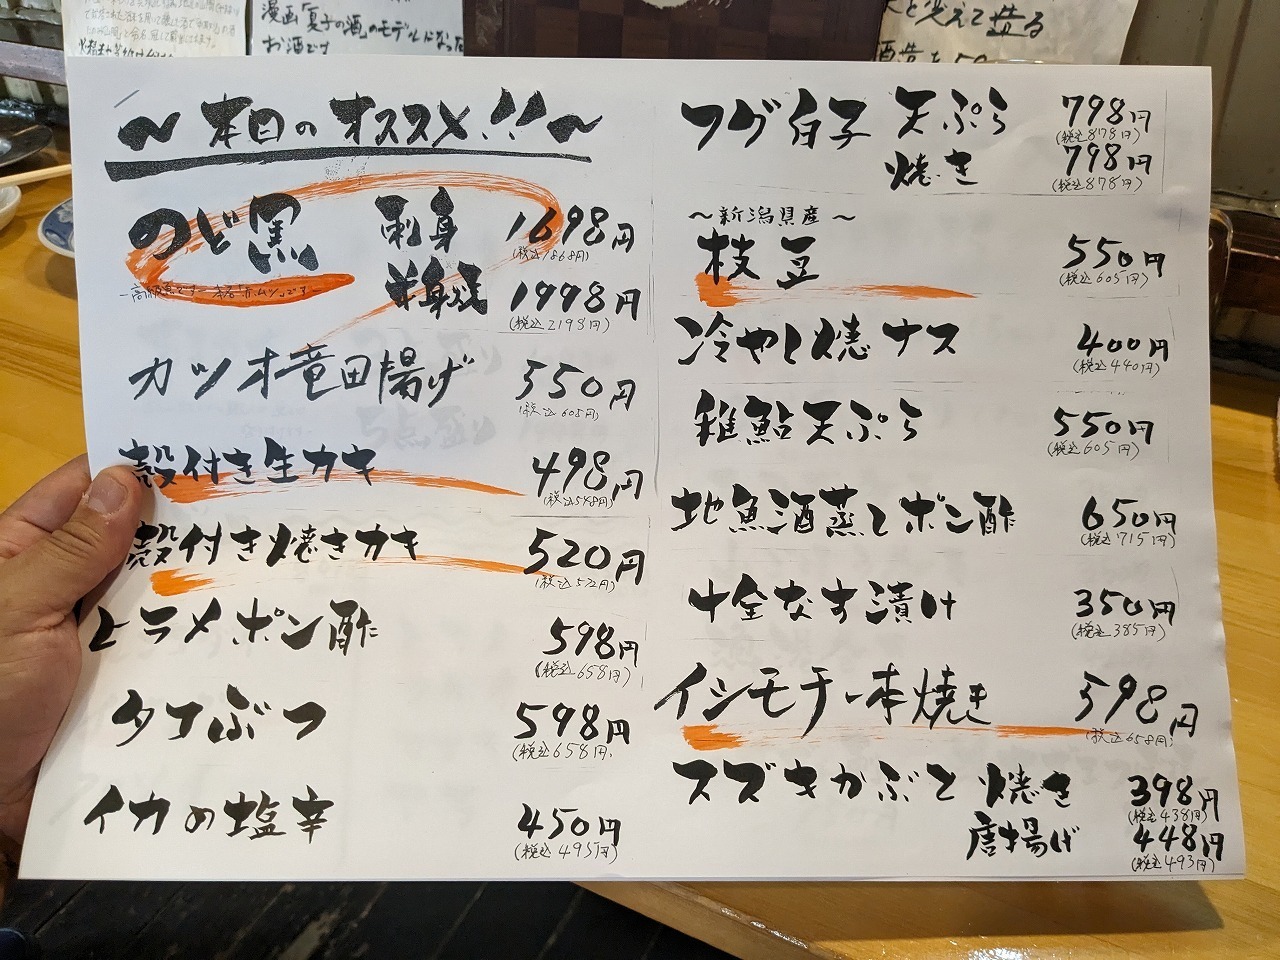 漫画「夏子の酒」のモデルになった
お酒です
~本日のオススメ!!~
のど黒 刺身 1698円
(税込1868円)
半身焼 1998円
(税込2198円)
カツオ竜田揚げ 550円
(税込605円)
殻付き生カキ 498円
(税込548円)
殻付き焼きカキ 520円
(税込572円)
ヒラメポン酢 598円
(税込658円)
タコぶつ 598円
(税込658円)
イカの塩辛 450円
(税込495円)
フグ白子 天ぷら 798円
(税込878円)
焼き 798円
(税込878円)
~新潟県産~
枝豆 550円
(税込605円)
冷やし焼ナス 400円
(税込440円)
稚鮎天ぷら 550円
(税込605円)
地魚酒蒸しポン酢 650円
(税込715円)
十全なす漬け 350円
(税込385円)
イシモチ一本焼き 598円
(税込658円)
スズキかぶと 焼き 398円
(税込438円)
唐揚げ 448円
(税込493円)